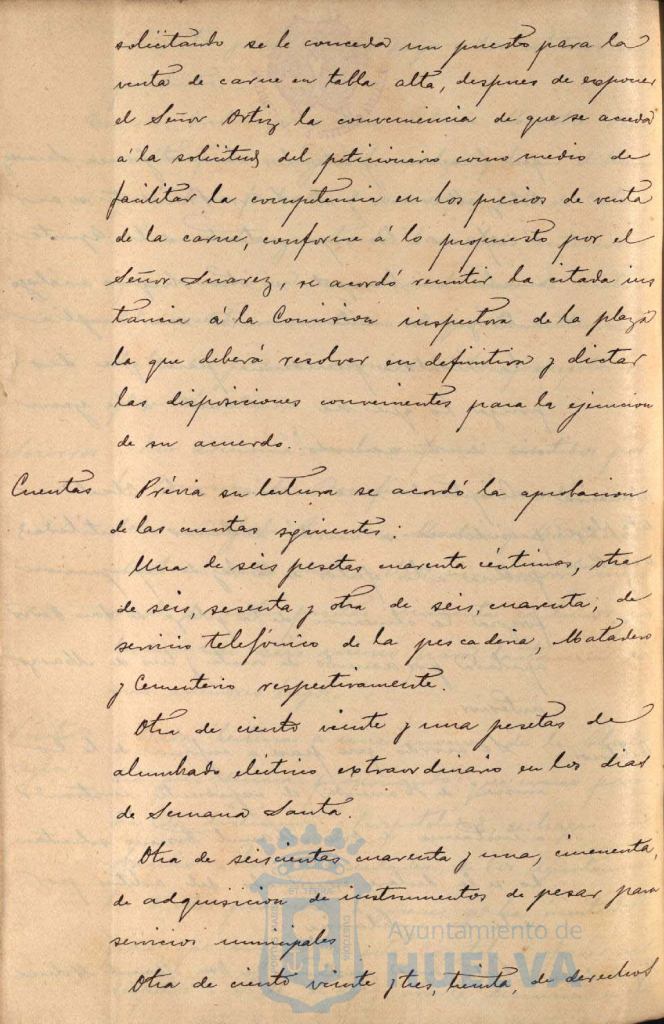 solicitando se le conceda un puesto para la
venta de carne en tabla alta, despues de exponer
el Señor Ortiz la conveniencia de que se acceda
á la solicitud del peticionario como medio de
facilitar la competencia en los precios de venta
de la carne, conforme á lo propuesto por el
Señor Suarez, se acordó remitir la citada ins
tancia á la Comision inspectora de la plaza
la que deberá resolver en definitiva y dictar
las disposiciones convenientes para la ejecucion
de su acuerdo.
Cuentas Prévia su lectura se acordó la aprobacion
de las cuentas siguientes:
Una de seis pesetas cuarenta céntimos, otra
de seis, sesenta y otra de seis, cuarenta, de
servicio telefónico de la pescaderia, Matadero
y Cementerio respectivamente.
Otra de ciento veinte y una pesetas de
alumbrado eléctrico extraordinario en los dias
de Semana Santa.
Otra de seiscientas cuarenta y una, cincuenta,
de adquisicion de instrumentos de pesar para
servicios municipales
Otra de ciento veinte y tres, treinta, de derechos
Ayuntamiento de
HUELVA